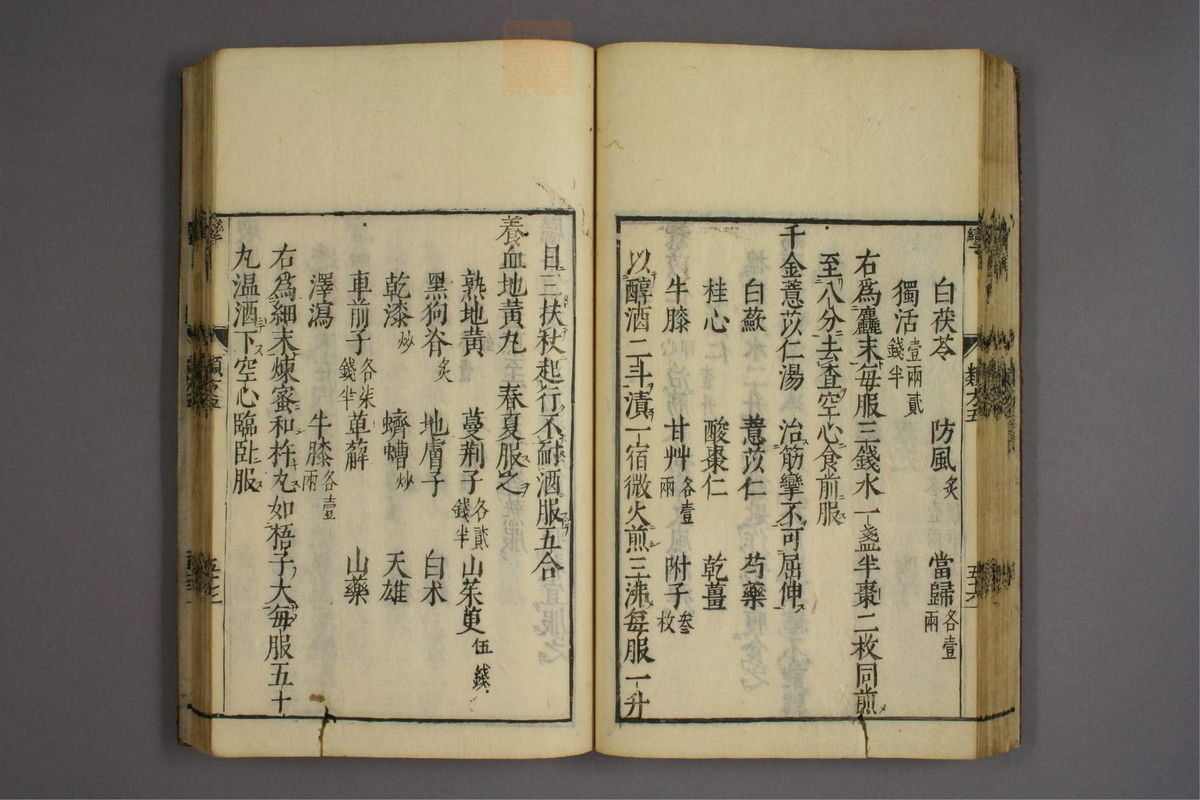 白茯苓 防風炙 當歸各壹兩
獨活壹兩貳錢半
右爲麤末每服三錢水一盞半棗二枚同煎
至八分去查空心食前服
千金薏苡仁湯 治筋攣不可屈伸
白蘇 薏苡仁 芍藥
桂心 酸棗仁 乾薑
牛膝 甘艸各壹兩 附子叁枚
以醇酒二斗漬一宿微火煎三沸每服一升
日三扶杖起行不耐酒服五合
養血地黃丸 春夏服之
熟地黃 蔓荆子各貳錢半 山茱萸伍錢
黑狗脊炙 地膚子 白朮
乾漆炒 蠐螬炒 天雄
車前子各柒錢半 萆薢 山藥
澤瀉 牛膝各壹兩
右爲細末煉蜜和杵丸如梧子大每服五十
丸溫酒下空心臨臥服